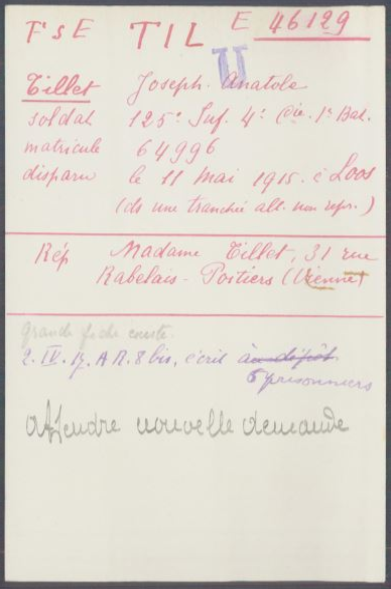 F s E TIL E 46129
U
Tillet Joseph-Anatole
soldat 125e Inf. 4e Cie. 1r Bat.
matricule 64996
disparu le 11 mai 1915. à Loos
(ds une tranchée all. non repr.)
Rép Madame Tillet, 31 rue
Rabelais - Poitiers (Vienne)
grande fiche
2. IV. 17. A R. 8 bis, écrit à au dépôt
6 prisonniers
attendre nouvelle demande